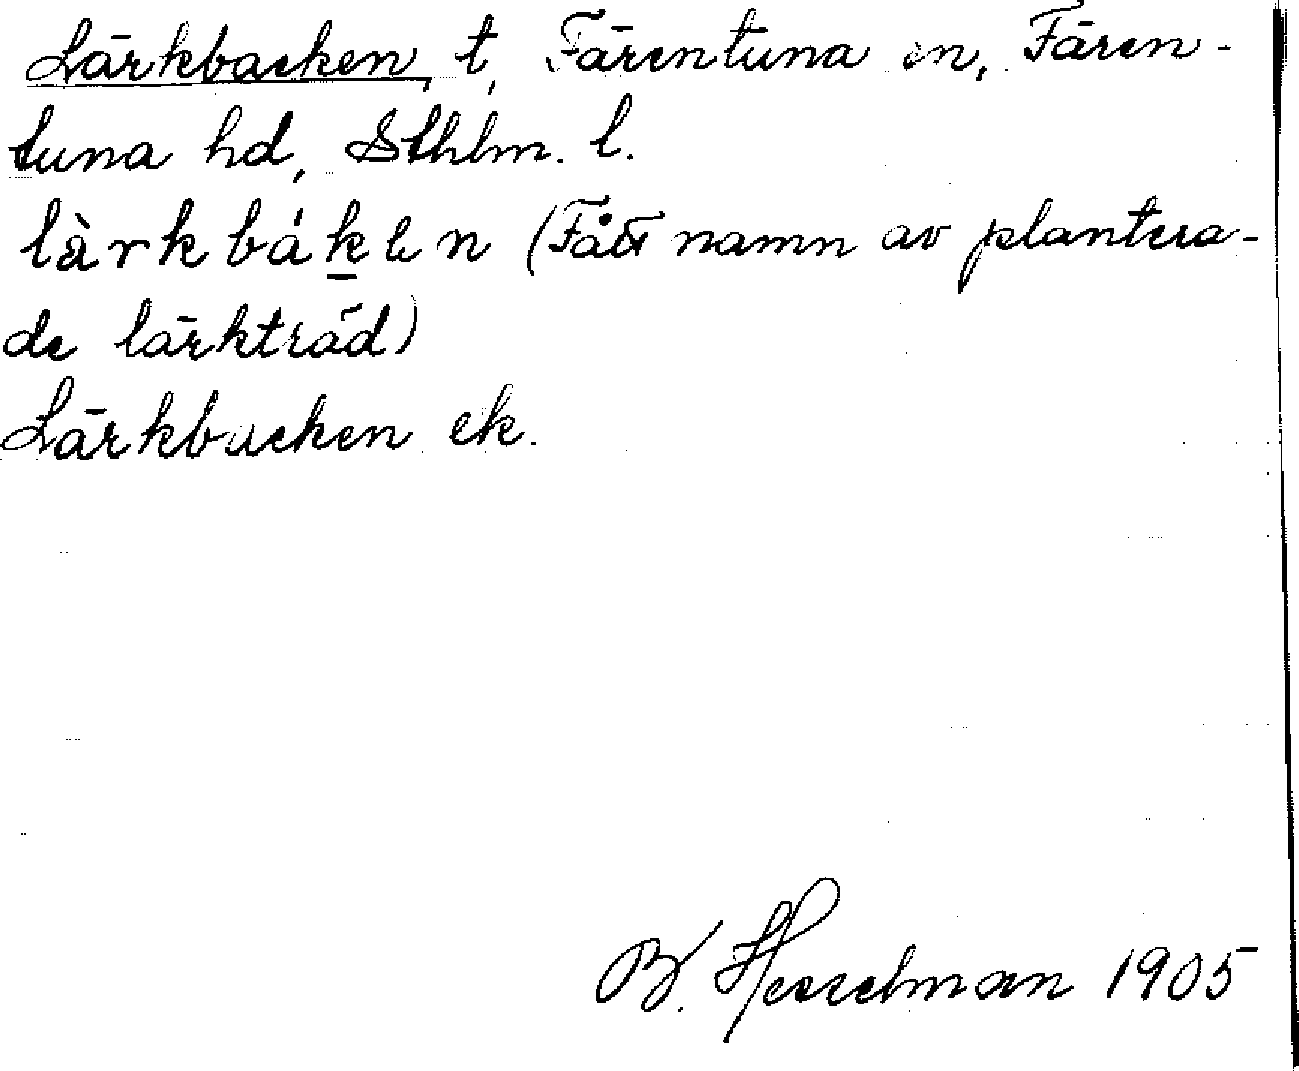 Lärkbacken, t, Färentuna sn, Fären-
tuna hd, Sthlm. l.
lärkbákən (Fått namn av plantera-
de lärkträd)
Lärkbacken ek.
B. Hesselman 1905